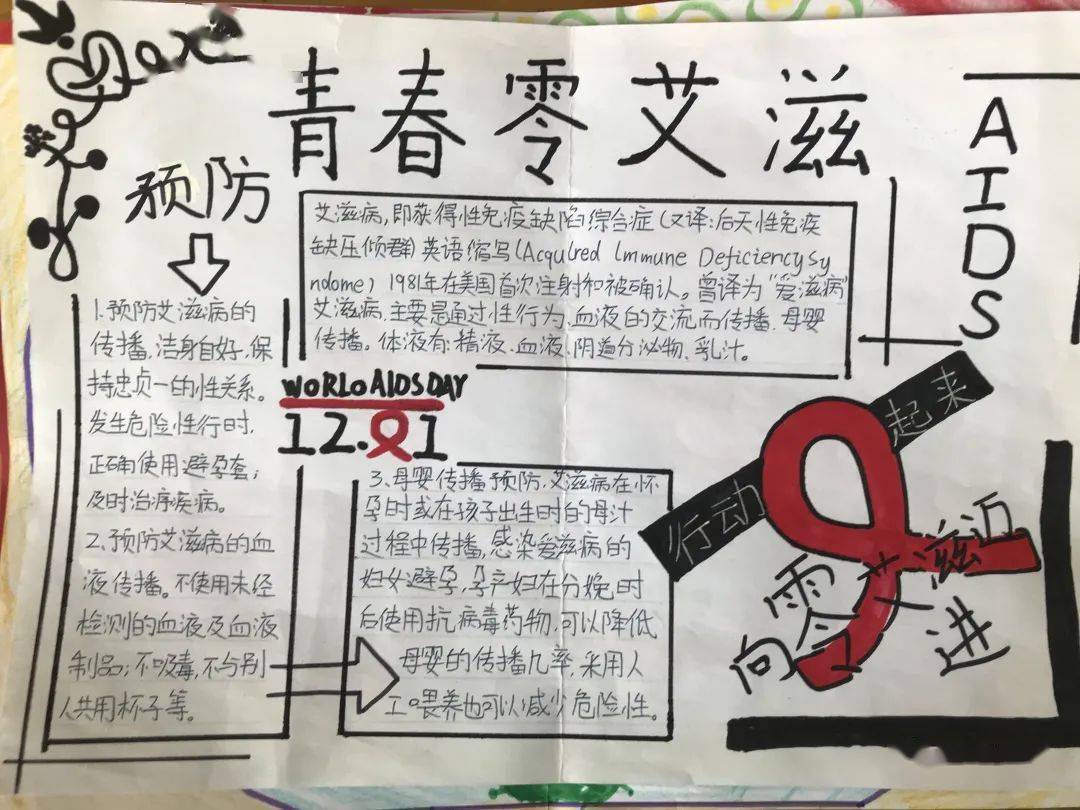 青春零艾滋
AIDS
预防
艾滋病,即获得性免疫缺陷综合症(又译:后天性免疫
缺压倾群)英语缩写(Acquired Immune Deficiency Sy
ndome) 1981年在美国首次注射和被确认。曾译为"爱滋病"
艾滋病,主要是通过性行为、血液的交流而传播,母婴
传播。体液有:精液、血液、阴道分泌物、乳汁。
1.预防艾滋病的
传播,洁身自好,保
持忠贞一的性关系。
发生危险性行时,
正确使用避孕套;
及时治疗疾病。
2.预防艾滋病的血
液传播。不使用未经
检测的血液及血液
制品;不吸毒,不与别
人共用杯子等。
WORLD AIDS DAY
12.1
3.母婴传播预防,艾滋病在怀
孕时或在孩子出生时的母汁
过程中传播,感染爱滋病的
妇女避孕,孕产妇在分娩时
后使用抗病毒药物,可以降低
母婴的传播几率,采用人
工喂养也可以减少危险性。
行动起来
向零艾滋迈进